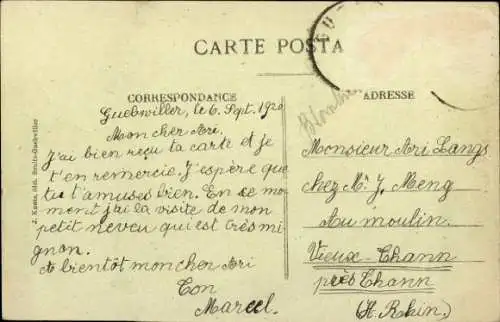 CARTE POSTA
CORRESPONDANCE
ADRESSE
Guebwiller, le 6. Sept. 1920
Mon cher Ari.
J'ai bien reçu ta carte et je
t'en remercie. J'espère que
tu t'amuses bien. En ce mo-
ment j'ai la visite de mon
petit neveu qui est très mi-
gnon.
A bientôt mon cher Ari
Ton
Marcel.
Monsieur Ari Langs
chez Mr J. Meng
Au moulin.
Vieux-Thann
près Thann
(H. Rhin)